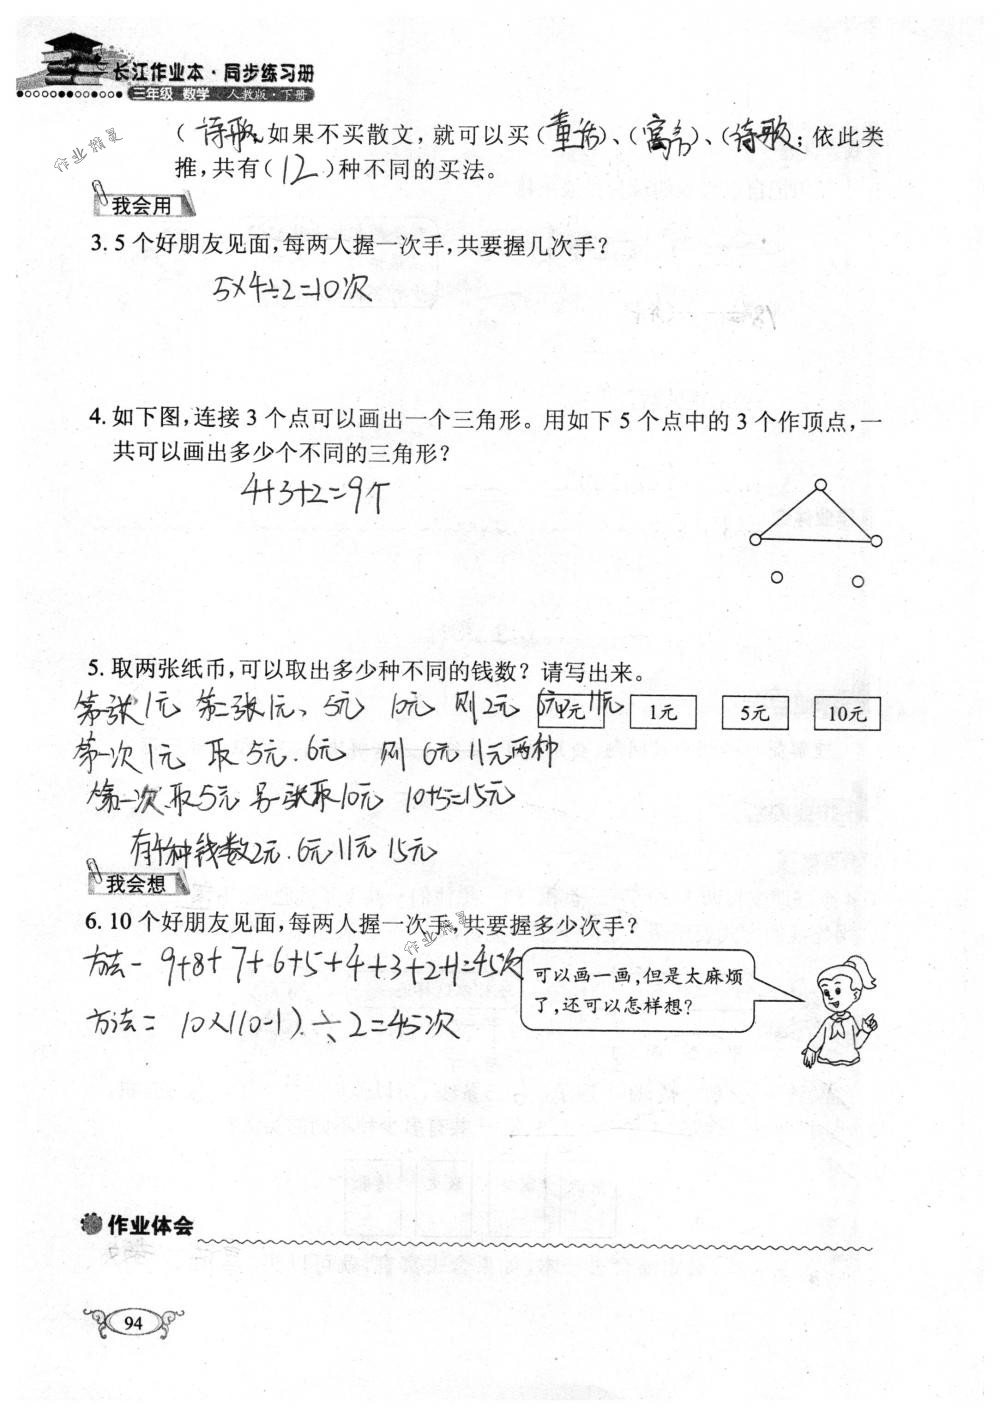 长江作业本·同步练习册
三年级 数学 人教版·下册
(诗歌;如果不买散文,就可以买(童话)、(寓言)、(诗歌;依此类
推,共有(12)种不同的买法。
作业精灵
我会用
3. 5个好朋友见面,每两人握一次手,共要握几次手?
5×4÷2=10次
4. 如下图,连接3个点可以画出一个三角形。用如下5个点中的3个作顶点,一
共可以画出多少个不同的三角形?
4+3+2=9个
5. 取两张纸币,可以取出多少种不同的钱数?请写出来。
第一张1元 第二张1元、5元 10元 则2元 6元 11元
1元 1元 5元 10元
第一次1元 取5元.6元 则6元11元两种
第一次取5元 另一张取10元 10+5=15元
种钱数2元.6元11元15元
我会想
6. 10个好朋友见面,每两人握一次手,共要握多少次手?
作业精灵
方法一 9+8+7+6+5+4+3+2+1=45次
方法二 10×(10-1).÷2=45次
可以画一画,但是太麻烦
了,还可以怎样想?
作业体会
94